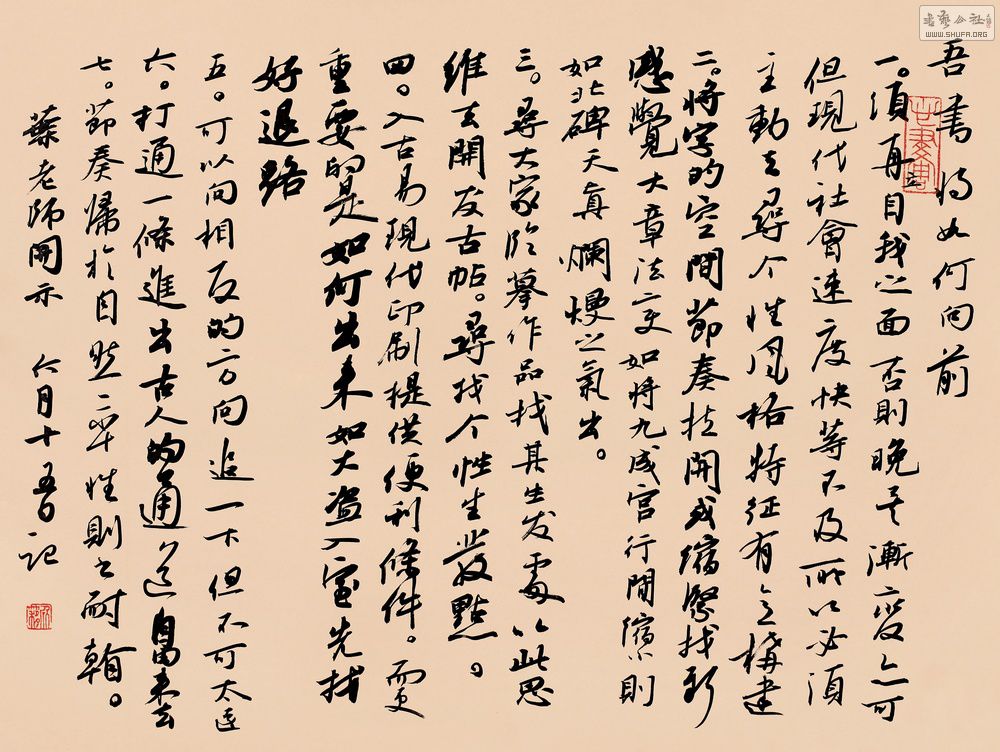 吾書將如何向前
一。須再立自我之面否則晚矣漸變亦可
但現代社會速度快等不及所以必須
主動去尋个性風格特征有意構建
二。將字的空間節奏拉開或縮緊找新
感覺大章法变如將九成宫行間縮小則
如北碑天真爛熳之氣出。
三。尋大家临摹作品找其生发處以此思
维去開发古帖。尋找个性生發點。
四。入古易現代印刷提供便利條件。而更
重要的是如何出来如大盗入室先找
好退路
五。可以向相反的方向追一下但不可太遠
六。打通一條進出古人的通道自由来去
七。節奏歸於自然率性則書耐翰。
葉老師開示 六月十五日記
書藝公社
WWW.SHUFA.ORG